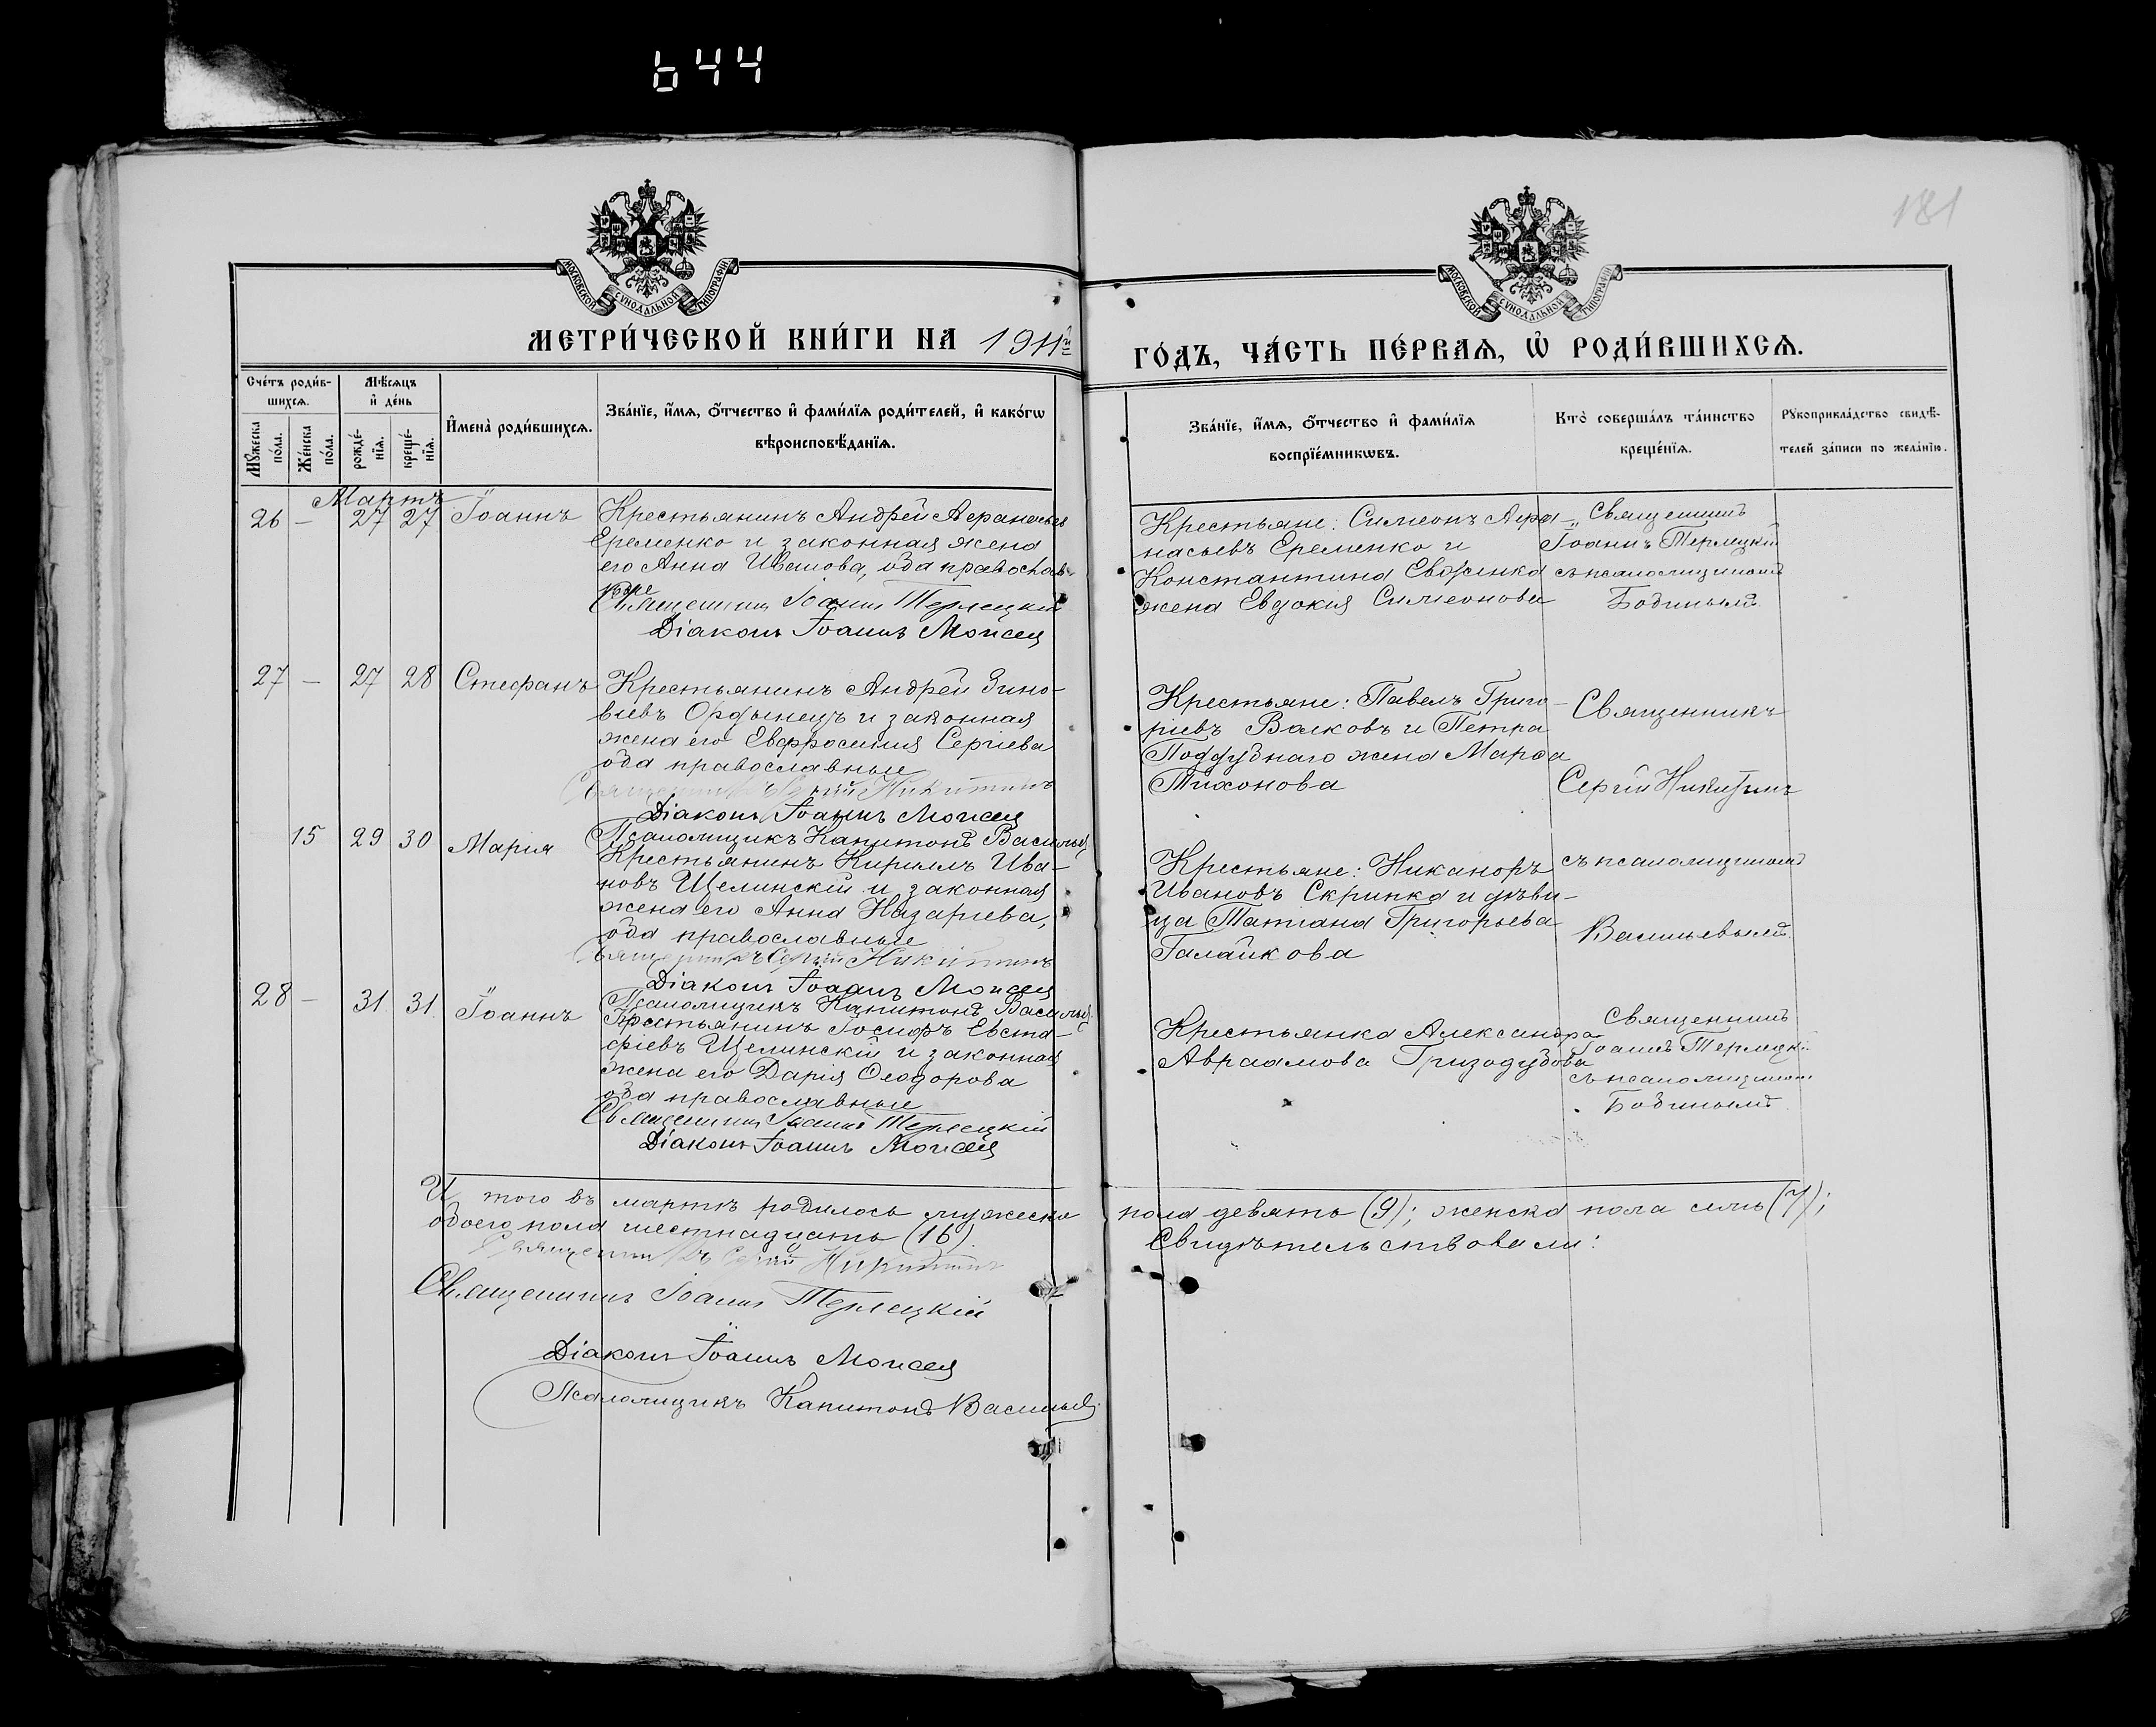 644
181
МОСКОВСКОЙ СѴНОДАЛЬНОЙ ТИПОГРАФІИ
МОСКОВСКОЙ СѴНОДАЛЬНОЙ ТИПОГРАФІИ
МЕТРИ́ЧЕСКОЙ КНИ́ГИ НА 1911й
ГО́ДЪ, ЧА́СТЬ ПЕ́РВАѦ, Ѡ҆ РОДИ́ВШИХСѦ.
Сче́тъ роди́в-
шихсѧ.
Мѣ́сѧцъ
и҆ де́нь
Мꙋ́жеска
по́ла.
Же́нска
по́ла.
рожде́-
нїѧ.
креще́-
нїѧ.
И҆мена̀ роди́вшихсѧ.
Зва́нїе, и҆́мѧ, ѻ҆́тчество и҆ фами́лїѧ роди́телей, и҆ како́гѡ
вѣроисповѣ́данїѧ.
Зва́нїе, и҆́мѧ, ѻ҆́тчество и҆ фами́лїѧ
воспрїе́мникѡвъ.
Кто̀ соверша́лъ та́инство
креще́нїѧ.
Рꙋкоприкла́дство свидѣ́-
телей за́писи по жела́нїю.
Мартъ
26 — 27 27 Іоаннъ
Крестьянинъ Андрей Аѳанасьев
Еременко и законная жена
его Анна Иванова, оба православ-
ные
Священникъ Іоаннъ Терлецкій
Діаконъ Іоаннъ Моисея
Крестьяне: Симеонъ Аѳа-
насьевъ Еременко и
Константина
жена Евдокия Симеонова
Священникъ
Іоаннъ Терлецкій
съ псаломщикомъ
Бодинымъ
27 — 27 28 Стефанъ
Крестьянинъ Андрей Зино-
віевъ Ордынецъ и законная
жена его Евфросиния Сергіева
оба православные
Священникъ Сергій Никитинъ
Діаконъ Іоаннъ Моисея
Псаломщикъ Капитонъ Васильев
Крестьяне: Павелъ Григо-
ріевъ Волковъ и Петра
Поддубнаго жена Марѳа
Тихонова
Священникъ
Сергій Никитинъ
съ псаломщикомъ
Васильевымъ
15 29 30 Мария
Крестьянинъ Кириллъ Ива-
новъ Щелинскій и законная
жена его Анна Назариева,
оба православные
Священникъ Сергій Никитинъ
Діаконъ Іоаннъ Моисея
Псаломщикъ Капитонъ Васильев
Крестьяне: Никаноръ
Ивановъ Скрипка и дѣви-
ца Татиана Григорьева
Галайкова
28 — 31 31 Іоаннъ
Крестьянинъ Іосифъ Евста-
фіевъ Щелинскій и законная
жена его Дарія Ѳеодорова
оба православные
Священникъ Іоаннъ Терлецкій
Діаконъ Іоаннъ Моисея
Крестьянка Александра
Авраамова Гризодубова
Священникъ
Іоаннъ Терлецкій
съ псаломщикомъ
Бодинымъ
И того въ мартѣ родилось мужеска пола девять (9); женска пола семь (7);
обоего пола шестнадцать (16).
Свидѣтельствовали:
Священникъ Сергій Никитинъ
Священникъ Іоаннъ Терлецкій
Діаконъ Іоаннъ Моисея
Псаломщикъ Капитонъ Васильев